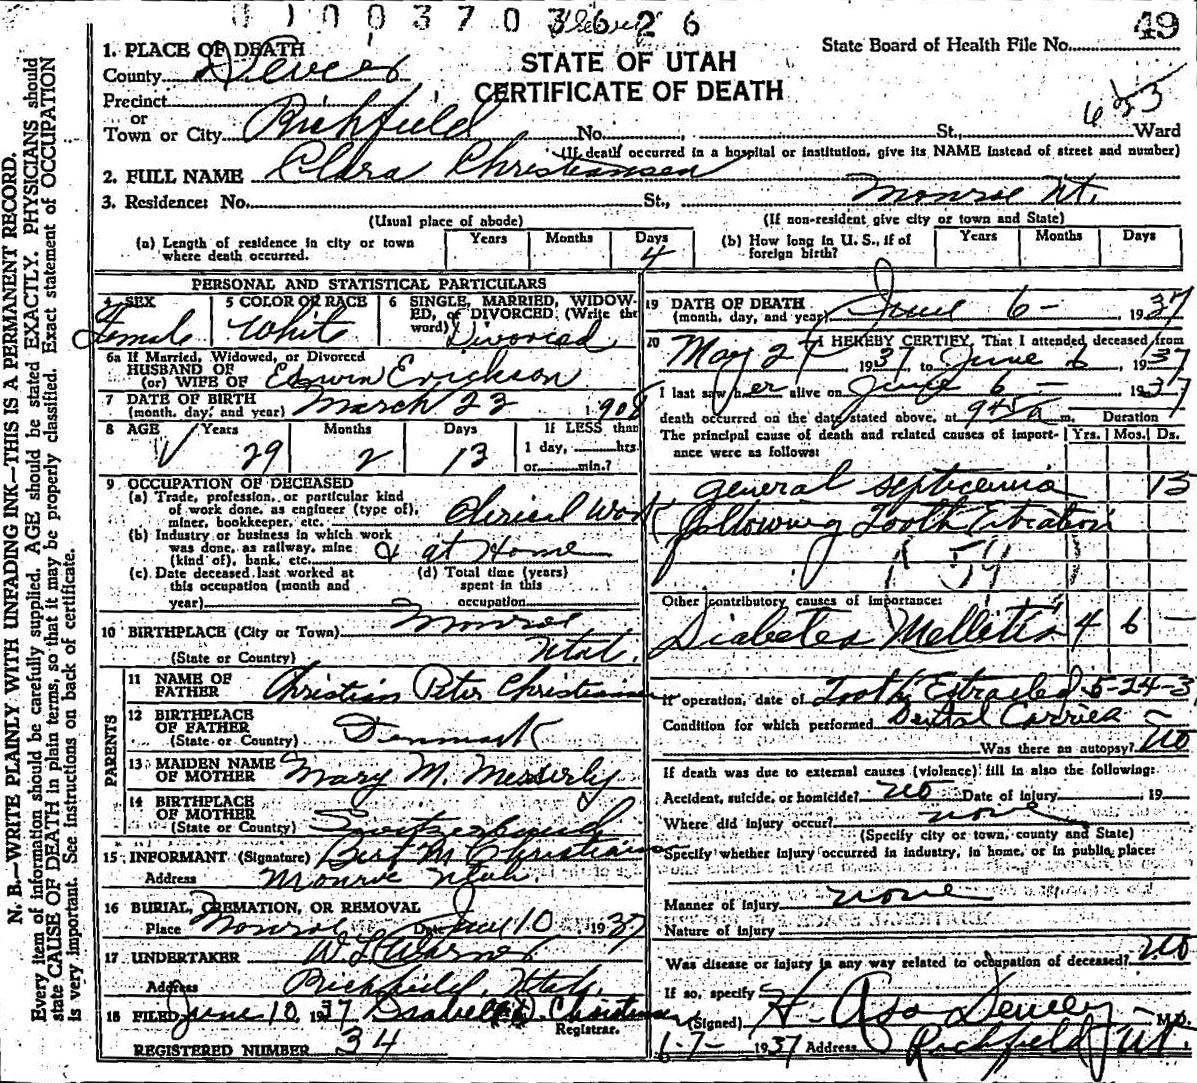 0 1 0 0 3 7 0 3 6 2 6
49
State Board of Health File No.
STATE OF UTAH
CERTIFICATE OF DEATH
1. PLACE OF DEATH
County Sevier
Precinct
or
Town or City Richfield No. St., Ward
(If death occurred in a hospital or institution, give its NAME instead of street and number)
2. FULL NAME Clara Christiansen
3. Residence: No. St., Monroe Ut.
(Usual place of abode) (If non-resident give city or town and State)
(a) Length of residence in city or town where death occurred. Years Months Days 4
(b) How long in U. S., if of foreign birth? Years Months Days
PERSONAL AND STATISTICAL PARTICULARS
4 SEX Female
5 COLOR OR RACE White
6 SINGLE, MARRIED, WIDOWED, or DIVORCED (Write the word) Divorced
6a If Married, Widowed, or Divorced
HUSBAND OF
(or) WIFE OF Edwin Erickson
7 DATE OF BIRTH
(month, day, and year) March 23 1908
8 AGE Years 29 Months 2 Days 13 If LESS than 1 day, hrs. or min.?
9 OCCUPATION OF DECEASED
(a) Trade, profession, or particular kind of work done, as engineer (type of), miner, bookkeeper, etc. Clerical Work
(b) Industry or business in which work was done, as railway, mine (kind of), bank, etc. & at Home
(c) Date deceased last worked at this occupation (month and year)
(d) Total time (years) spent in this occupation
10 BIRTHPLACE (City or Town) Monroe
(State or Country) Utah.
PARENTS
11 NAME OF FATHER Christian Peter Christiansen
12 BIRTHPLACE OF FATHER
(State or Country) Denmark
13 MAIDEN NAME OF MOTHER Mary M. Messerly
14 BIRTHPLACE OF MOTHER
(State or Country) Switzerland
15 INFORMANT (Signature) Bert M Christiansen
Address Monroe Utah.
16 BURIAL, CREMATION, OR REMOVAL
Place Monroe Date June 10 1937
17 UNDERTAKER W L Warner
Address Richfield, Utah.
18 FILED June 10, 1937 Isabelle D. Christensen
Registrar.
REGISTERED NUMBER 34
19 DATE OF DEATH
(month, day, and year) June 6- 1937
20 I HEREBY CERTIFY, That I attended deceased from
May 27 1937, to June 6, 1937
I last saw her alive on June 6 - 1937
death occurred on the date stated above, at 945 a m. Duration
The principal cause of death and related causes of importance were as follows: Yrs. Mos. Ds.
general septicemia 13
following Tooth Extration
Other contributory causes of importance:
Diabetes Mellitis 4 6 -
If operation, date of Tooth Extracted 5-24-3
Condition for which performed Dental Carries -
Was there an autopsy? no
If death was due to external causes (violence) fill in also the following:
Accident, suicide, or homicide? no Date of injury , 19
Where did injury occur? none
(Specify city or town, county and State)
Specify whether injury occurred in industry, in home, or in public place:
Manner of injury none
Nature of injury
Was disease or injury in any way related to occupation of deceased? no
If so, specify
(Signed) H. Asa Dewey M.D.
6-7- 1937 Address Richfield Ut.
N. B.—WRITE PLAINLY WITH UNFADING INK—THIS IS A PERMANENT RECORD.
Every item of information should be carefully supplied. AGE should be stated EXACTLY. PHYSICIANS should
state CAUSE OF DEATH in plain terms, so that it may be properly classified. Exact statement of OCCUPATION
is very important. See instructions on back of certificate.